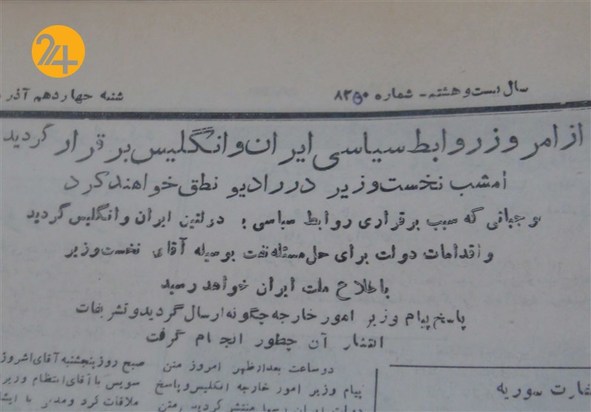 24
سال بیست و هشتم - شماره ۸۲۵۰
شنبه چهاردهم آذر
از امروز روابط سیاسی ایران و انگلیس برقرار گردید
امشب نخست وزیر در رادیو نطق خواهند کرد
موجباتی که سبب برقراری روابط سیاسی بین دولتین ایران و انگلیس گردید
و اقدامات دولت برای حل مسئله نفت بوسیله آقای نخست وزیر
باطلاع ملت ایران خواهد رسید
پاسخ پیام وزیر امور خارجه چگونه ارسال گردید و تشریفات
انتشار آن چطور انجام گرفت
دو ساعت بعد از ظهر امروز متن
پیام وزیر امور خارجه انگلیس و پاسخ
منتشر گردید متن
صبح روز پنجشنبه آقای
سویس با آقای انتظام وزیر
ملاقات کرد و مدتی با
سفارت سوریه